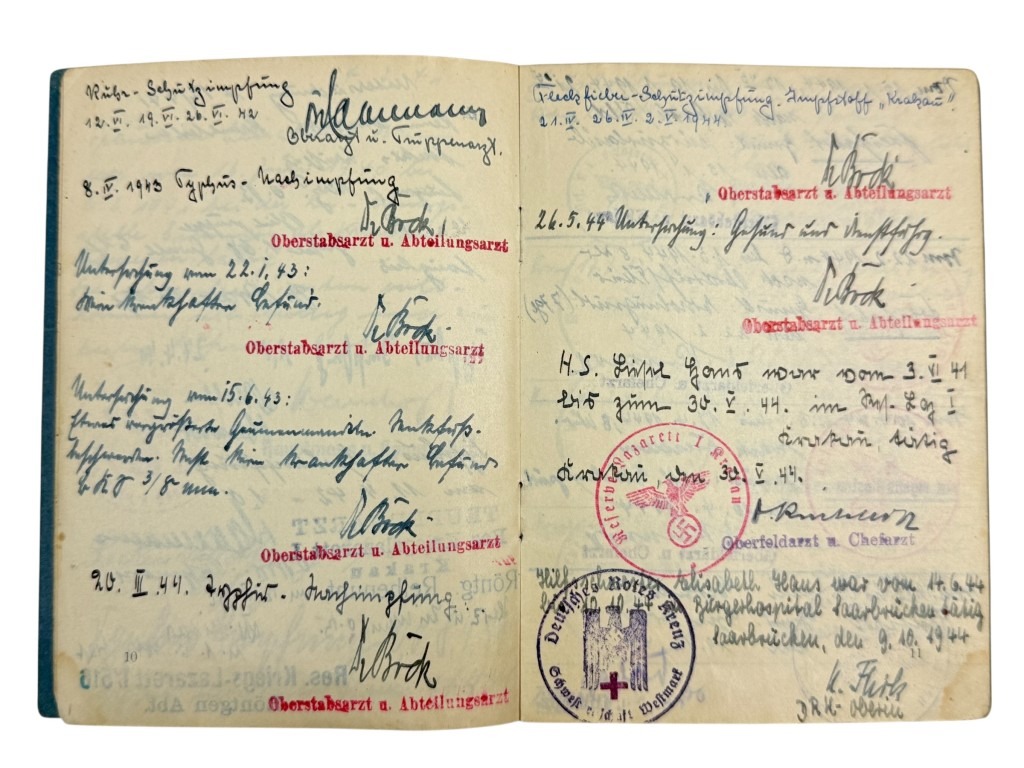 Ruhr-Schutzimpfung
12. VI. 19. VI. 26. VI. 42
Oberarzt u. Truppenarzt.
8. IV. 1943 Typhus-Nachimpfung
Dr Böck
Oberstabsarzt u. Abteilungsarzt
Untersuchung vom 22.1.43:
Kein krankhafter Befund.
Dr Böck.
Oberstabsarzt u. Abteilungsarzt
Untersuchung vom 15.6.43:
Etwas vergrößerte Gaumenmandeln. Senkfuß-
beschwerden. Sonst kein krankhafter Befund
BKS 3/8 mm.
Dr Böck.
Oberstabsarzt u. Abteilungsarzt
20. III. 44. Typhus-Nachimpfung
Dr Böck
Oberstabsarzt u. Abteilungsarzt
10
Fleckfieber-Schutzimpfung. Impfstoff „Krakau"
21. IV. 26. IV. 2. V. 1944
Dr Böck
Oberstabsarzt u. Abteilungsarzt
26.5.44 Untersuchung: Gesund und dienstfähig.
Dr Böck
Oberstabsarzt u. Abteilungsarzt
H.S. Liesel Hans war vom 3. VI 41
bis zum 30. V. 44. im Res. Laz I
Krakau, tätig
Krakau, den 30. V. 44.
Reservelazarett I Krakau
Oberfeldarzt u. Chefarzt
Hilfsschwester Elisabeth Hans war vom 14.6.44
Bürgerhospital Saarbrücken tätig
Saarbrücken, den 9.10.1944
Deutsches Rotes Kreuz
Schwesternschaft Westmark
DRK-Oberin
11